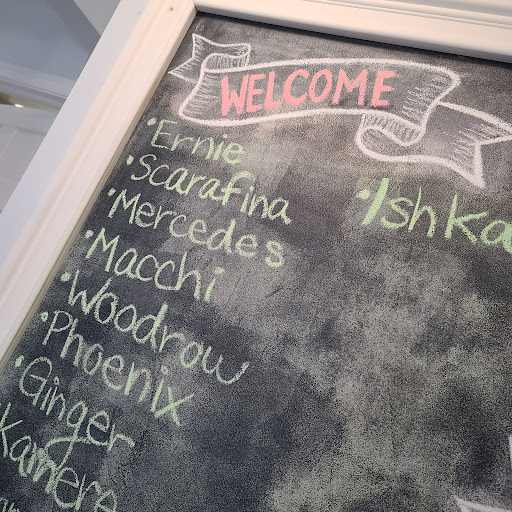 WELCOME
• Ernie
• Scarafina
• Mercedes
• Macchi
• Woodrow
• Phoenix
• Ginger
Kamere
• Ishka